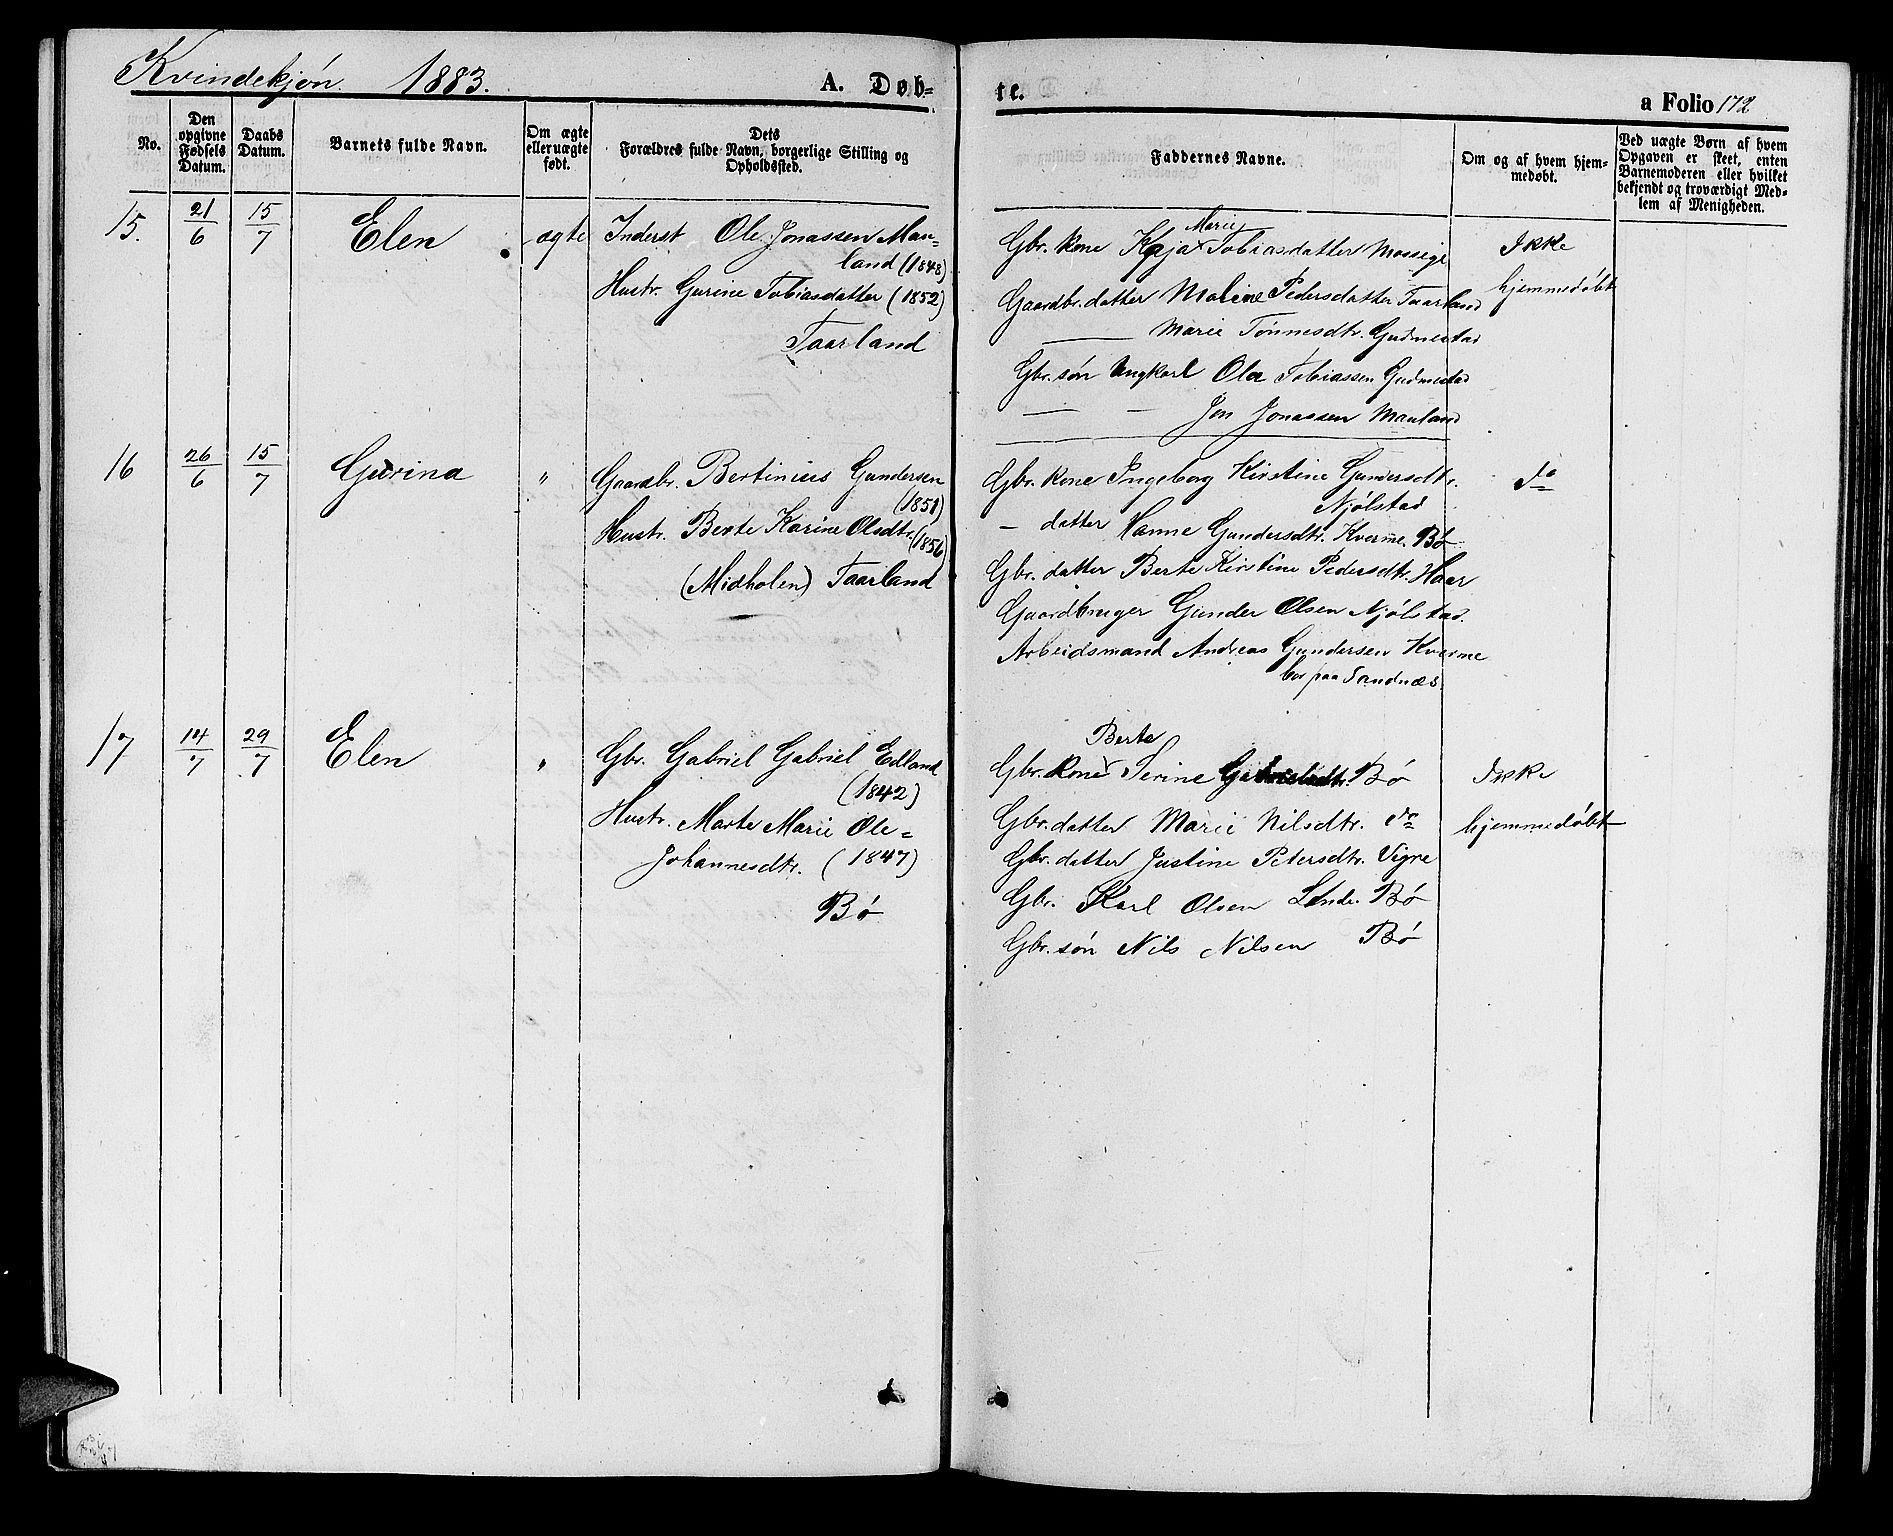 Kvindekjøn. 1883. A. Døb=
te.
a Folio 172
No.
Den
opgivne
Fødsels
Datum.
Daabs
Datum.
Barnets fulde Navn.
Om ægte
eller uægte
født.
Dets
Forældres fulde Navn, borgerlige Stilling og
Opholdssted.
Faddernes Navne.
Om og af hvem hjem-
medøbt.
Ved uægte Børn af hvem
Opgaven er skeet, enten
Barnemoderen eller hvilket
bekjendt og troværdigt Med-
lem af Menigheden.
15. 21/6 15/7 Elen ægte
Inderst Ole Jonassen Mau=
land (1848)
Hustr. Gurine Tobiasdatter (1852)
Taarland
Marie
Gbr. kone Kaja Tobiasdatter Mossige
Gaardbr. datter Malene Pedersdatter Taarland
— Marie Tønnesdtr. Gudmestad
Gbr. søn Ungkarl Ola Tobiassen Gudmestad
— — Jon Jonassen Mauland
Ikke
hjemmedøbt
16 26/6 15/7 Gurina "
Gaardbr. Bertinius Gundersen
(1851)
Hustr. Berte Karine Olsdtr. (1856)
(Midholen) Taarland
Gbr. kone Ingeborg Kirstine Gundersdtr.
Njølstad
— datter Hanne Gundersdtr. Kverme. Bø
Gbr. datter Berte Kirstine Pedersdtr. Haar
Gaardbruger Gunder Olsen Njølstad.
Arbeidsmand Andreas Gundersen Kverme
bor paa Sandnæs.
do
17 14/7 29/7 Elen "
Gbr. Gabriel Gabriel Edland
(1842)
Hustr. Marte Marie Ole=
Johannesdtr. (1847)
Bø
Berte
Gbr. kone Serine Gabrielsdtr. Bø
Gbr. datter Marie Nilsdtr. do
Gbr. datter Justine Petersdtr. Vigre
Gbr. Karl Olsen Lende. Bø
Gbr. søn Nils Nilsen Bø
Ikke
hjemmedøbt